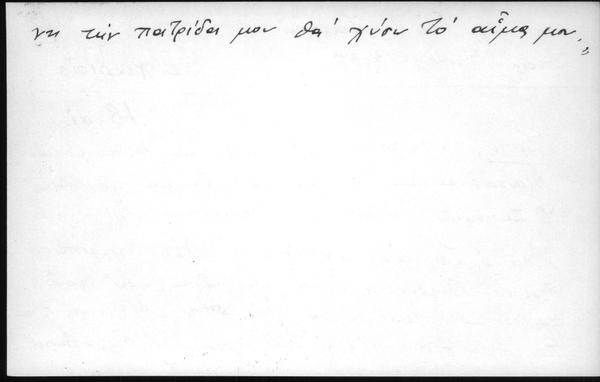 γιὰ τὴν πατρίδα μου θὰ χύσω τὸ αἷμα μου.»